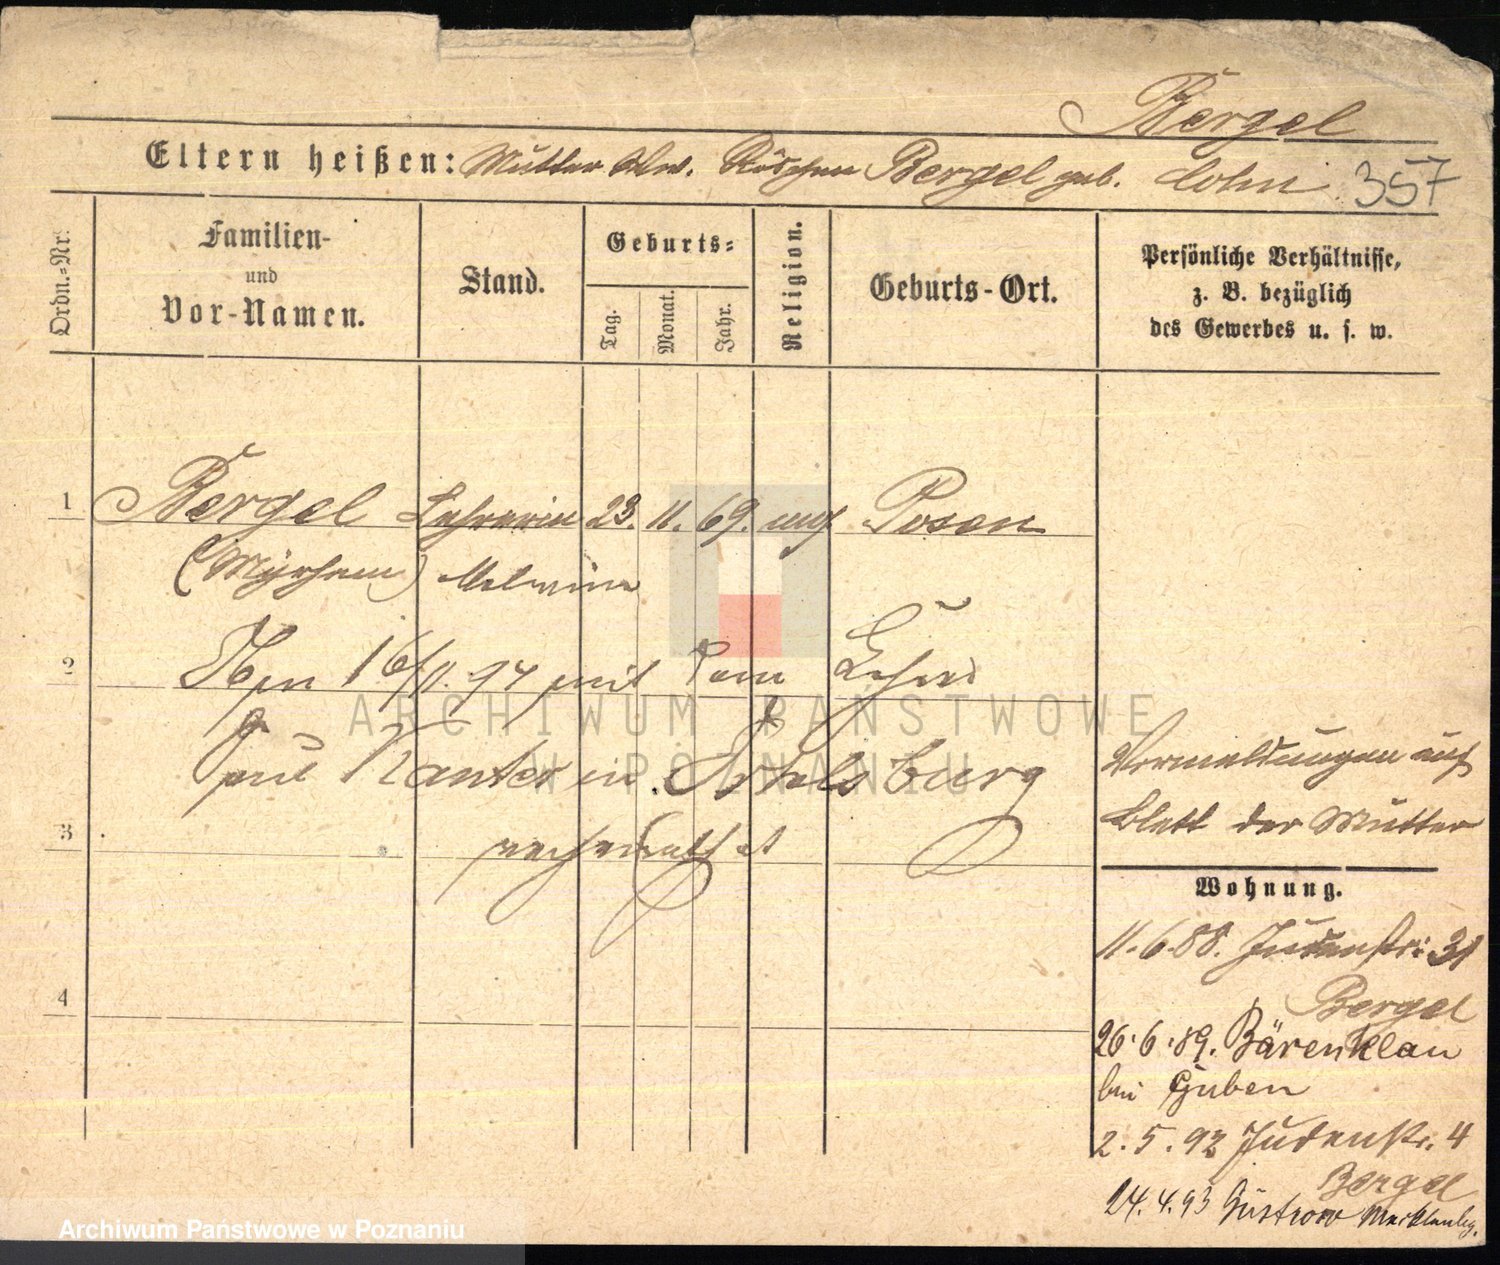 Bergel
Eltern heißen: Mutter Wwe. Röschen Bergel geb. Cohn 357
Ordn.-Nr.
Familien-
und
Vor-Namen.
Stand.
Geburts-
Tag.
Monat.
Jahr.
Religion.
Geburts-Ort.
Persönliche Verhältnisse,
z. B. bezüglich
des Gewerbes u. s. w.
1 Bergel Lehrerin 23. 11. 69. Posen
Malwine
2 16/11. 97 mit dem
Kantor in Ortelsburg
3 verheirathet
4
Vermeldungen auf
Blatt der Mutter
Wohnung.
11.6.88. Judenstr: 31
Bergel
26.6.89. Bärenklau
bei Guben
2.5.92 Judenstr. 4
Bergel
24.4.93 Güstrow Mecklenbg.
ARCHIWUM PAŃSTWOWE
W POZNANIU
Archiwum Państwowe w Poznaniu